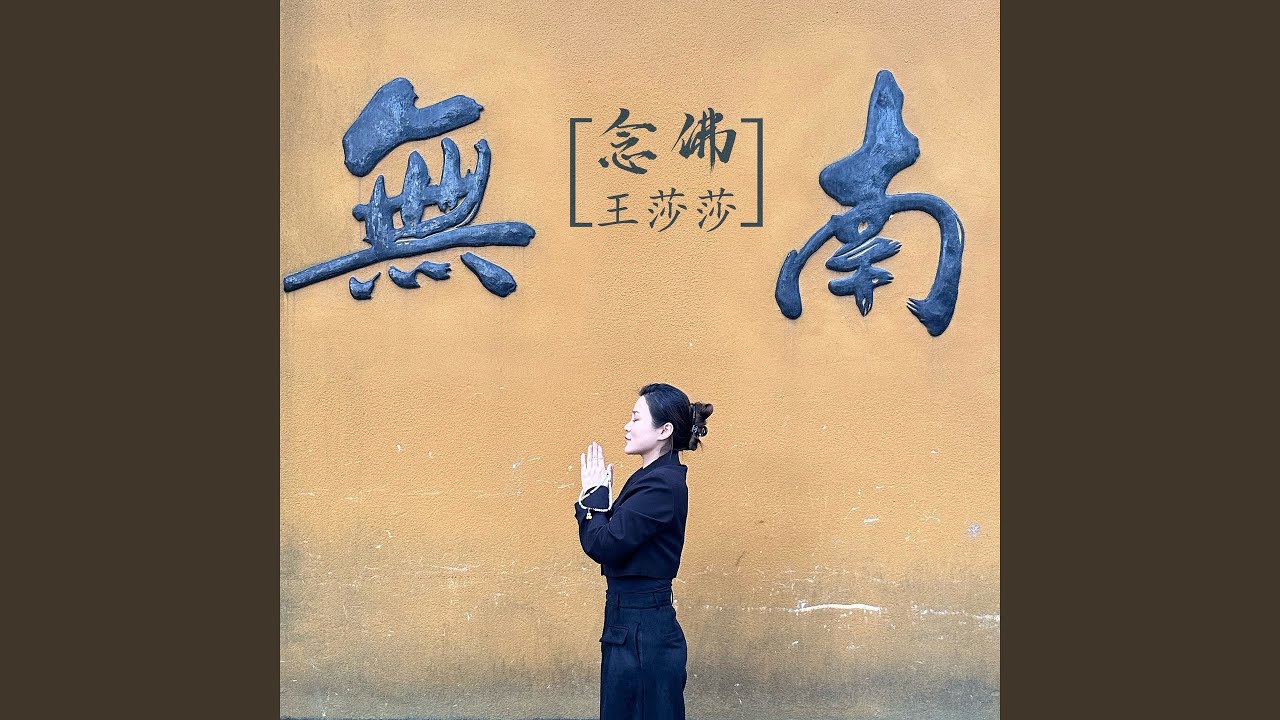 南無
念佛
王莎莎